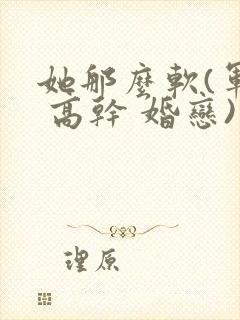 她那麼軟(軍
高幹 婚戀)
理原